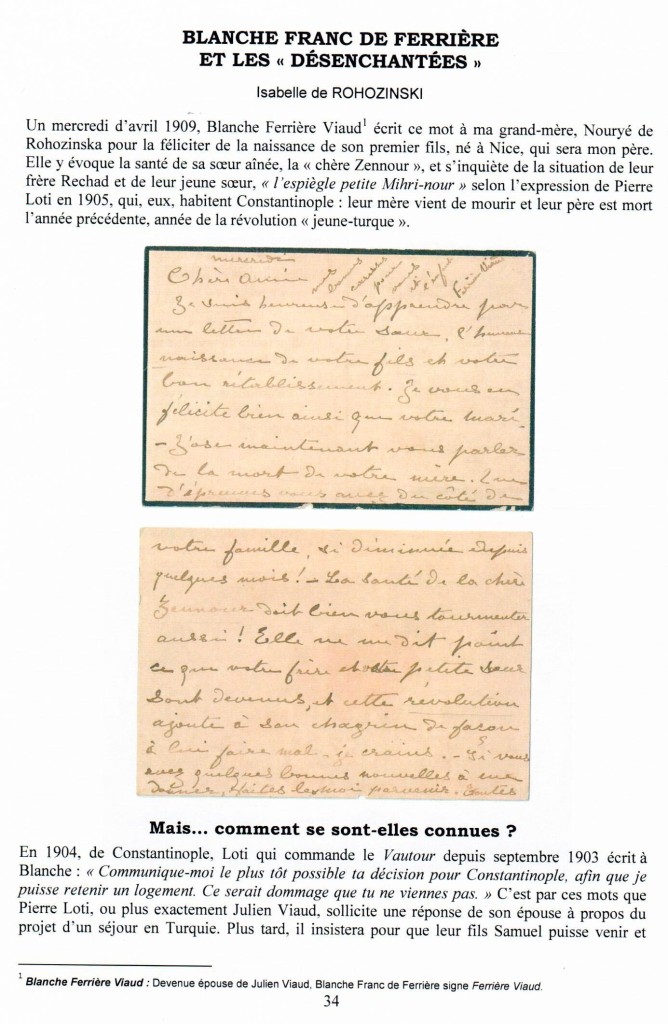 BLANCHE FRANC DE FERRIÈRE
ET LES « DÉSENCHANTÉES »
Isabelle de ROHOZINSKI
Un mercredi d'avril 1909, Blanche Ferrière Viaud¹ écrit ce mot à ma grand-mère, Nouryé de
Rohozinska pour la féliciter de la naissance de son premier fils, né à Nice, qui sera mon père.
Elle y évoque la santé de sa sœur aînée, la « chère Zennour », et s'inquiète de la situation de leur
frère Rechad et de leur jeune sœur, « l'espiègle petite Mihri-nour » selon l'expression de Pierre
Loti en 1905, qui, eux, habitent Constantinople : leur mère vient de mourir et leur père est mort
l'année précédente, année de la révolution « jeune-turque ».
mercredi
Chère Amie
mes bonnes caresses pour vous et l'enfant
Ferrière Viaud
Je suis heureuse d'apprendre par
une lettre de votre sœur, l'heureuse
naissance de votre fils et votre
bon rétablissement. Je vous en
félicite bien ainsi que votre mari.
- J'ose maintenant vous parler
de la mort de votre mère. Que
d'épreuves vous avez du côté de
votre famille, si diminuée depuis
quelques mois ! - La santé de la chère
Zennour doit bien vous tourmenter
aussi ! Elle ne me dit point
ce que votre frère et votre petite sœur
sont devenus, et cette révolution
ajoute à son chagrin de façon
à lui faire mal - je crains. - Si vous
avez quelques bonnes nouvelles à me
donner, faites les moi parvenir. Toutes
Mais... comment se sont-elles connues ?
En 1904, de Constantinople, Loti qui commande le Vautour depuis septembre 1903 écrit à
Blanche : « Communique-moi le plus tôt possible ta décision pour Constantinople, afin que je
puisse retenir un logement. Ce serait dommage que tu ne viennes pas. » C'est par ces mots que
Pierre Loti, ou plus exactement Julien Viaud, sollicite une réponse de son épouse à propos du
projet d'un séjour en Turquie. Plus tard, il insistera pour que leur fils Samuel puisse venir et
¹ Blanche Ferrière Viaud : Devenue épouse de Julien Viaud, Blanche Franc de Ferrière signe Ferrière Viaud.
34